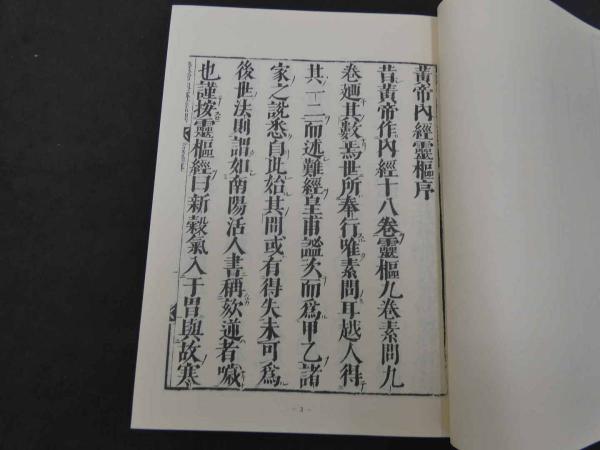 黃帝內經靈樞序
昔黃帝作內經十八卷靈樞九卷素問九
卷廼其數焉世所奉行唯素問耳越人得
其一二而述難經皇甫謐次而爲甲乙諸
家之說悉自此始其間或有得失未可爲
後世法則謂如南陽活人書稱欬逆者噦
也謹按靈樞經曰新穀氣入于胃與故寒
- 3 -